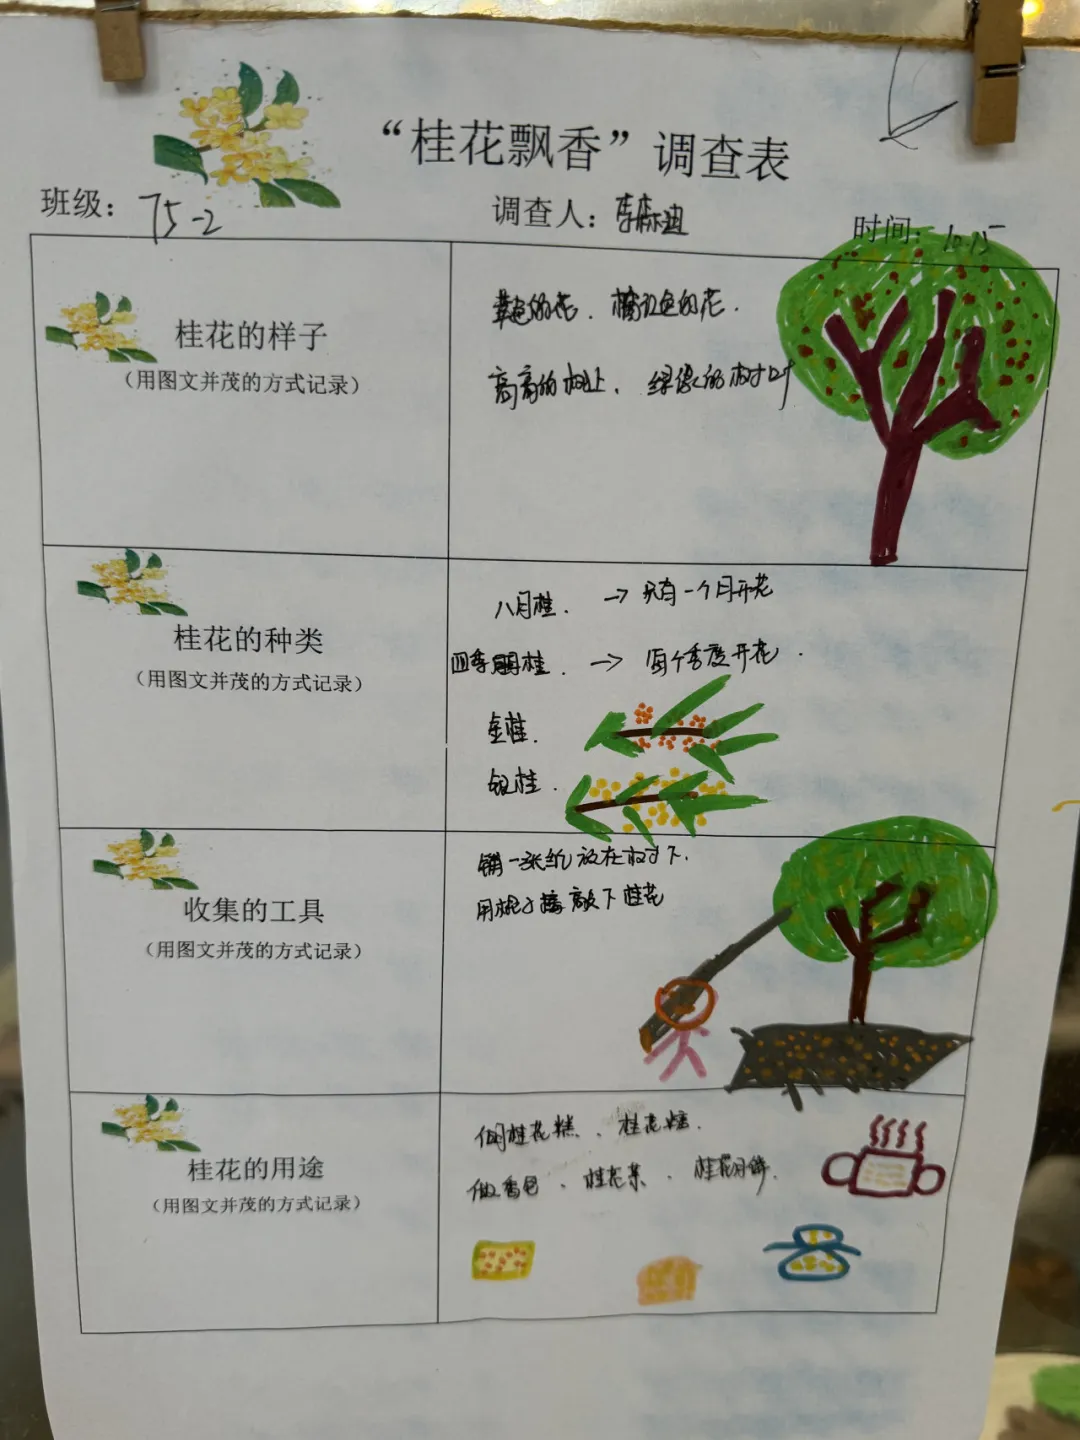 “桂花飘香”调查表
班级：75-2 调查人：李 迪 时间：10.15
桂花的样子
（用图文并茂的方式记录）
黄色的花、橘红色的花.
高高的树上、绿绿的树叶
桂花的种类
（用图文并茂的方式记录）
八月桂. → 只有一个月开花
四季桂. → 每个季度开花.
金桂.
银桂.
收集的工具
（用图文并茂的方式记录）
铺一张纸放在树下.
用棍子敲下桂花
桂花的用途
（用图文并茂的方式记录）
做桂花糕、桂花糖.
做香包、桂花茶、桂花月饼.